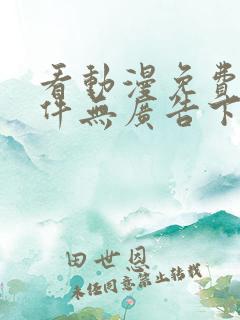 看動漫免費
件無廣告下
田世恩
未經同意禁止轉載